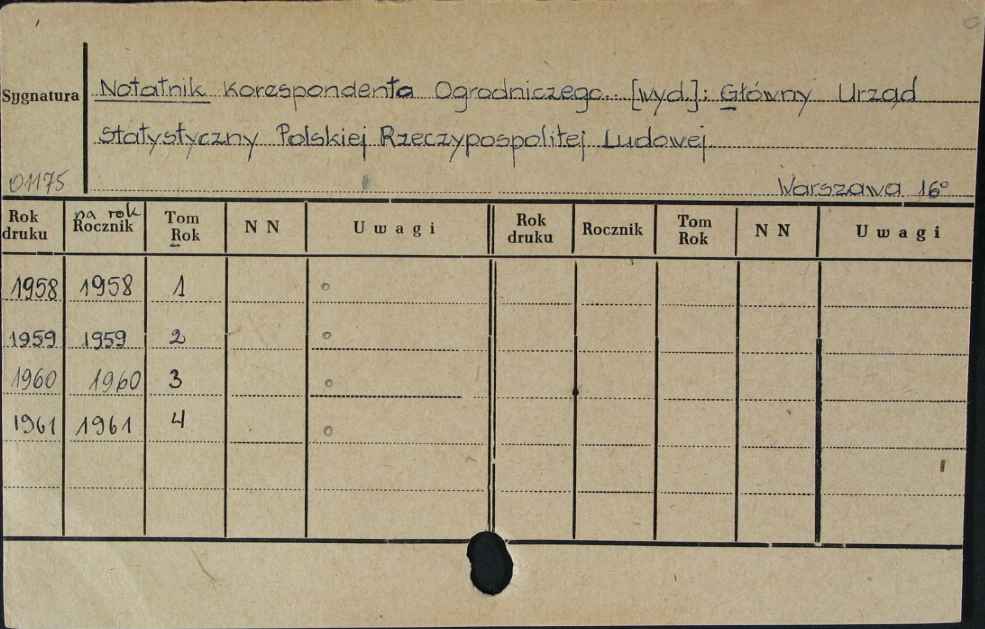 Sygnatura
Notatnik Korespondenta Ogrodniczego. [wyd.]: Główny Urząd
Statystyczny Polskiej Rzeczypospolitej Ludowej.
01175
Warszawa 16°
Rok druku na rok Rocznik Tom Rok N N Uwagi Rok druku Rocznik Tom Rok N N Uwagi
1958 1958 1 °
1959 1959 2 °
1960 1960 3 °
1961 1961 4 °